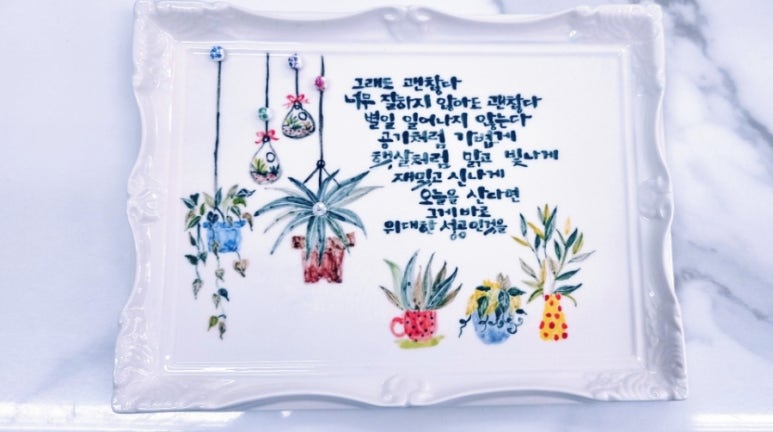 그래도 괜찮다
너무 잘하지 않아도 괜찮다
별일 일어나지 않는다
공기처럼 가볍게
햇살처럼 맑고 빛나게
재밌고 신나게
오늘을 산다면
그게 바로
위대한 성공인것을